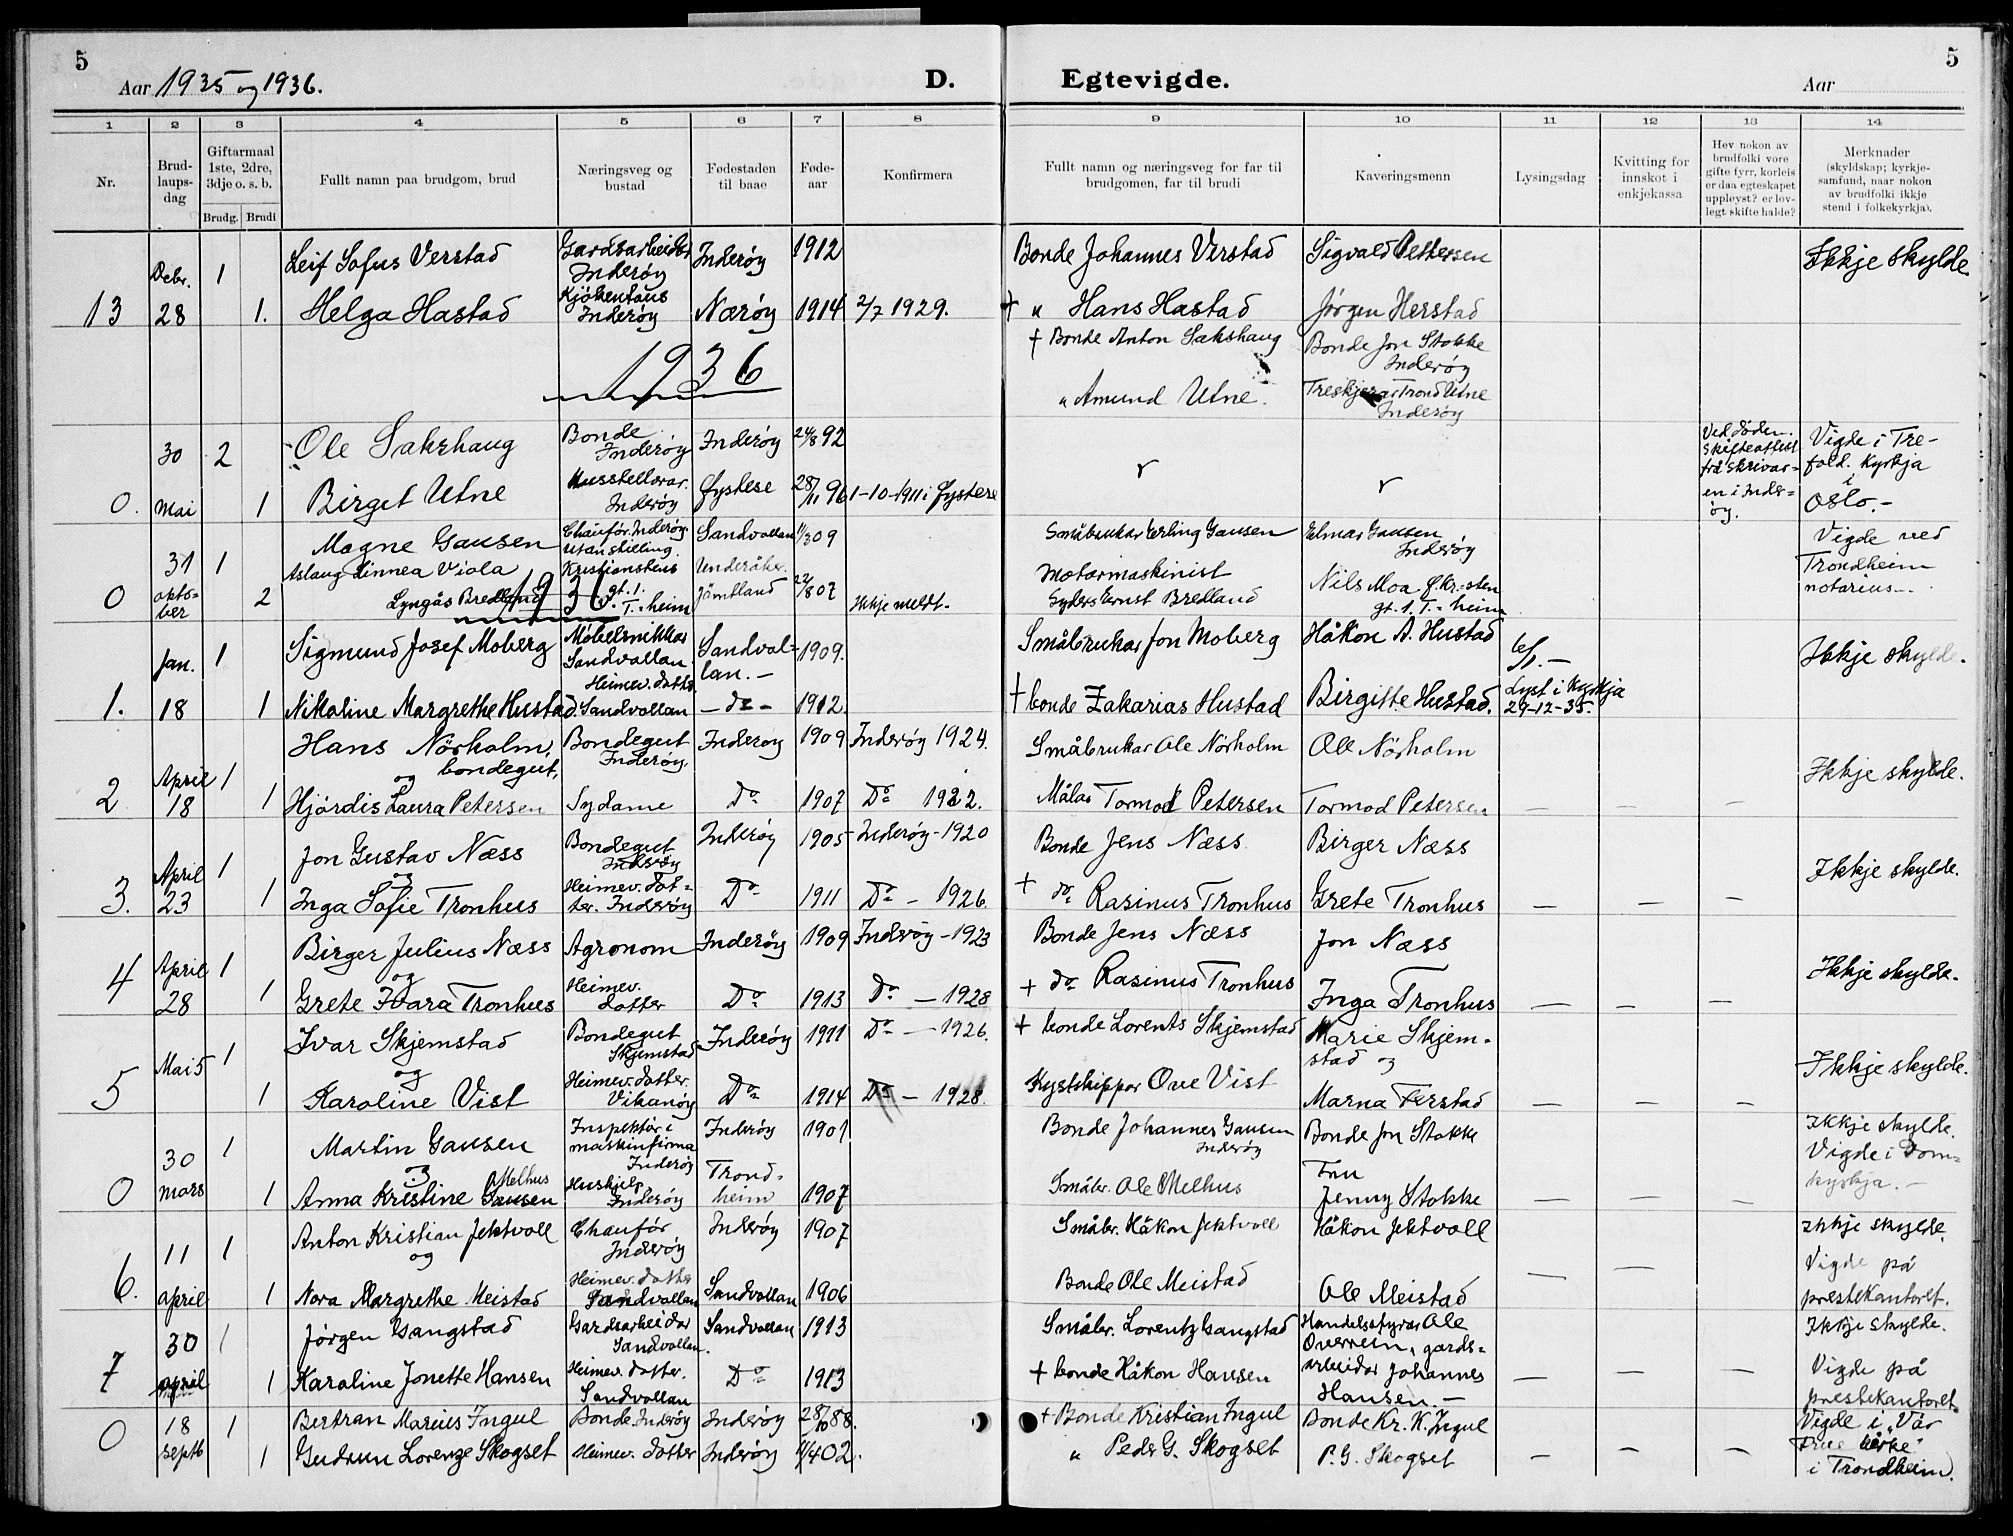 5
Aar 1935 og 1936.
D.
Egtevigde.
Aar
5
1 2 3 4 5 6 7 8 9 10 11 12 13 14
Nr.
Brud-
laups-
dag
Giftarmaal
1ste, 2dre,
3dje o. s. b.
Brudg. Brudi
Fullt namn paa brudgom, brud
Næringsveg og
bustad
Fødestaden
til baae
Føde-
aar
Konfirmera
Fullt namn og næringsveg for far til
brudgomen, far til brudi
Kaveringsmenn
Lysingsdag
Kvitting for
innskot i
enkjekassa
Hev nokon av
brudfolki vore
gifte fyrr, korleis
er daa egteskapet
uppløyst? er lov-
legt skifte halde?
Merknader
(skyldskap; kyrkje-
samfund, naar nokon
av brudfolki ikkje
stend i folkekyrkja).
13
Debr.
28
1
1.
Leif Sofus Verstad
Gardsarbeider
Inderøy
Inderøy
1912
Bonde Johannes Verstad
Sigvald Pettersen
Ikkje skylde.
Helga Hastad
Kjøkentaus
Inderøy
Nærøy
1914
2/7 1929.
+ " Hans Hastad
Jørgen Herstad
1936
+ Bonde Anton Sakshaug
Bonde Jon Stokke
Inderøy
" Amund Utne.
Treskjerar Trond Utne
Inderøy
0.
30
Mai
2
1
Ole Sakshaug
Bonde
Inderøy
Inderøy
24/8 92
Ved døden.
Skifteattest
frå skrivar-
en i Inder-
øy.
Vigde i Tre-
fold. Kyrkja
i
Oslo.-
Birget Utne
Husstellærar.
Inderøy
Øystese
28/11 96
1-10-1911 i Øystese
0
31
okto-
ber
1
2
Magne Gausen
Chaufør. Inderøy
utan stilling.
Sandvollan
11/3 09
Småbrukar Erling Gausen
Elmar Gausen
Inderøy
Vigde ved
Trondheim
notarius.-
Aslaug Linnea Viola
Lyngås Bredland
Kristianstens
gt. 1.
T.=heim
Underåker.
Jämtland
22/8 07
Ikkje meldt.
Motormaskinist
Syders Ernst Bredland
Nils Moa Ø. Kr.-sten
gt. 1. T.=heim
1936
1.
Jan.
18
1
1
Sigmund Josef Moberg
Møbelsnikkar
Sandvollan
Sandvol-
lan.-
1909.
Småbrukar Jon Moberg
Håkon A. Hustad
6/1.-
Ikkje skylde.
Nikoline Margrethe Hustad.
Heimev. dotter
Sandvollan
- do -
1912
+ bonde Zakarias Hustad
Birgitte Hustad.
Lyst i Kyrkja
29-12-35.
2
April
18
1
1
Hans Nörholm,
bondegut,
og
Bondegut
Inderöy
Inderoy
1909
Inderöy 1924.
Småbrukar Ole Nörholm
Ole Nörholm
Ikkje skylde.
Hjördis Laura Petersen
Sydame
Do
1907
Do 1922.
Målar Tormod Petersen
Tormod Petersen
3.
April
23
1
1
Jon Gustav Næss
og
Bondegut
Inderöy
Inderöy
1905
Inderöy - 1920
Bonde Jens Næss.
Birger Næss
Ikkje skylde.
Inga Sofie Tronhus
Heimev. dot-
ter. Inderöy
Do
1911
Do - 1926.
+ do Rasinus Tronhus
Grete Tronhus
4
April
28
1
1
Birger Julius Næss
og
Agronom
Inderöy
1909
Inderöy - 1923
Bonde Jens Næss
Jon Næss
Ikkje skylde.
Grete Ivara Tronhus
Heimev.
dotter
Do
1913
Do - 1928
+ do Rasinus Tronhus
Inga Tronhus
5
Mai 5
1
1
Ivar Skjemstad
og
Bondegut
Skjemstad
Inderöy
1911
Do - 1926.
+ bonde Lorents Skjemstad
Marie Skjem-
stad og
Ikkje skylde.
Karoline Vist
Heimev. dotter.
Vikanöy
Do
1914
Do - 1928.
Kystskippar Ove Vist
Marna Ferstad
0
30
mars
1
1
Martin Gausen
og
Inspektör i
maskinfirma
Inderöy
Inderöy
1901
Bonde Johannes Gausen
Inderöy
Bonde Jon Stokke
Ikkje skylde.
Vigde i Dom-
kyrkja.-
Melhus
Anna Kristine Gausen
Huskjelp
Inderöy
Trond-
heim
1907
Småbr. Ole Melhus
Fru
Jenny Stokke
6.
11
april
1
1
Anton Kristian Jektvoll
og
Chauför
Inderöy
Inderöy
1907
Småbr. Håkon Jektvoll
Håkon Jektvoll
Ikkje skylde.
Vigde på
prestekantoret.
Nora Margrethe Meistad
Heimev. dotter
Sandvollan
Sandvollan
1906
Bonde Ole Meistad
Ole Meistad
7
30
april
1
1
Jørgen Gangstad
Gardsarbeidar
Sandvollan.
Sandvollan
1913
Småbr. Lorentz Gangstad
Handelsstyrar Ole
Overrein, gards-
arbeidar Johannes
Hansen.-
Ikkje skylde.
Vigde på
prestekantoret.
Karoline Jonette Hansen
Heimev. dotter.
Sandvollan
Do
1913
+ bonde Håkon Hansen
0
18
septb
1
1
Bertran Marius Ingul
Bonde. Inderöy
Inderöy
28/10 88.
+ Bonde Kristian Ingul
Bonde Kr. K. Ingul
Vigde i „Vår
Frue kirke"
i Trondheim.
Gudrun Lorenze Skogset
Heimev. dotter
Inderöy
11/4 02.
" Peder G. Skogset
P. G. Skogset